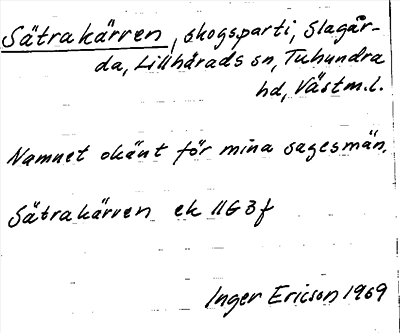 Sätrakärren, skogsparti, Slagår-
da, Lillhärads sn, Tuhundra
hd, Västm.l.
Namnet okänt för mina sagesmän.
Sätrakärren ek 11G3f
Inger Ericson 1969